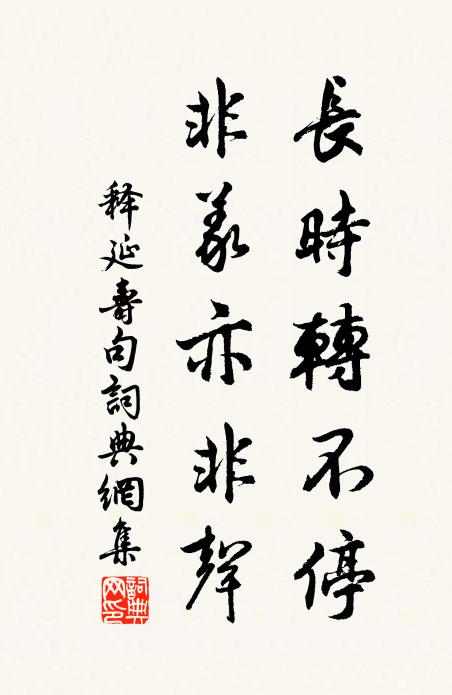 長時轉不停
非義亦非聲
释延壽句詞典網集
詞典網印